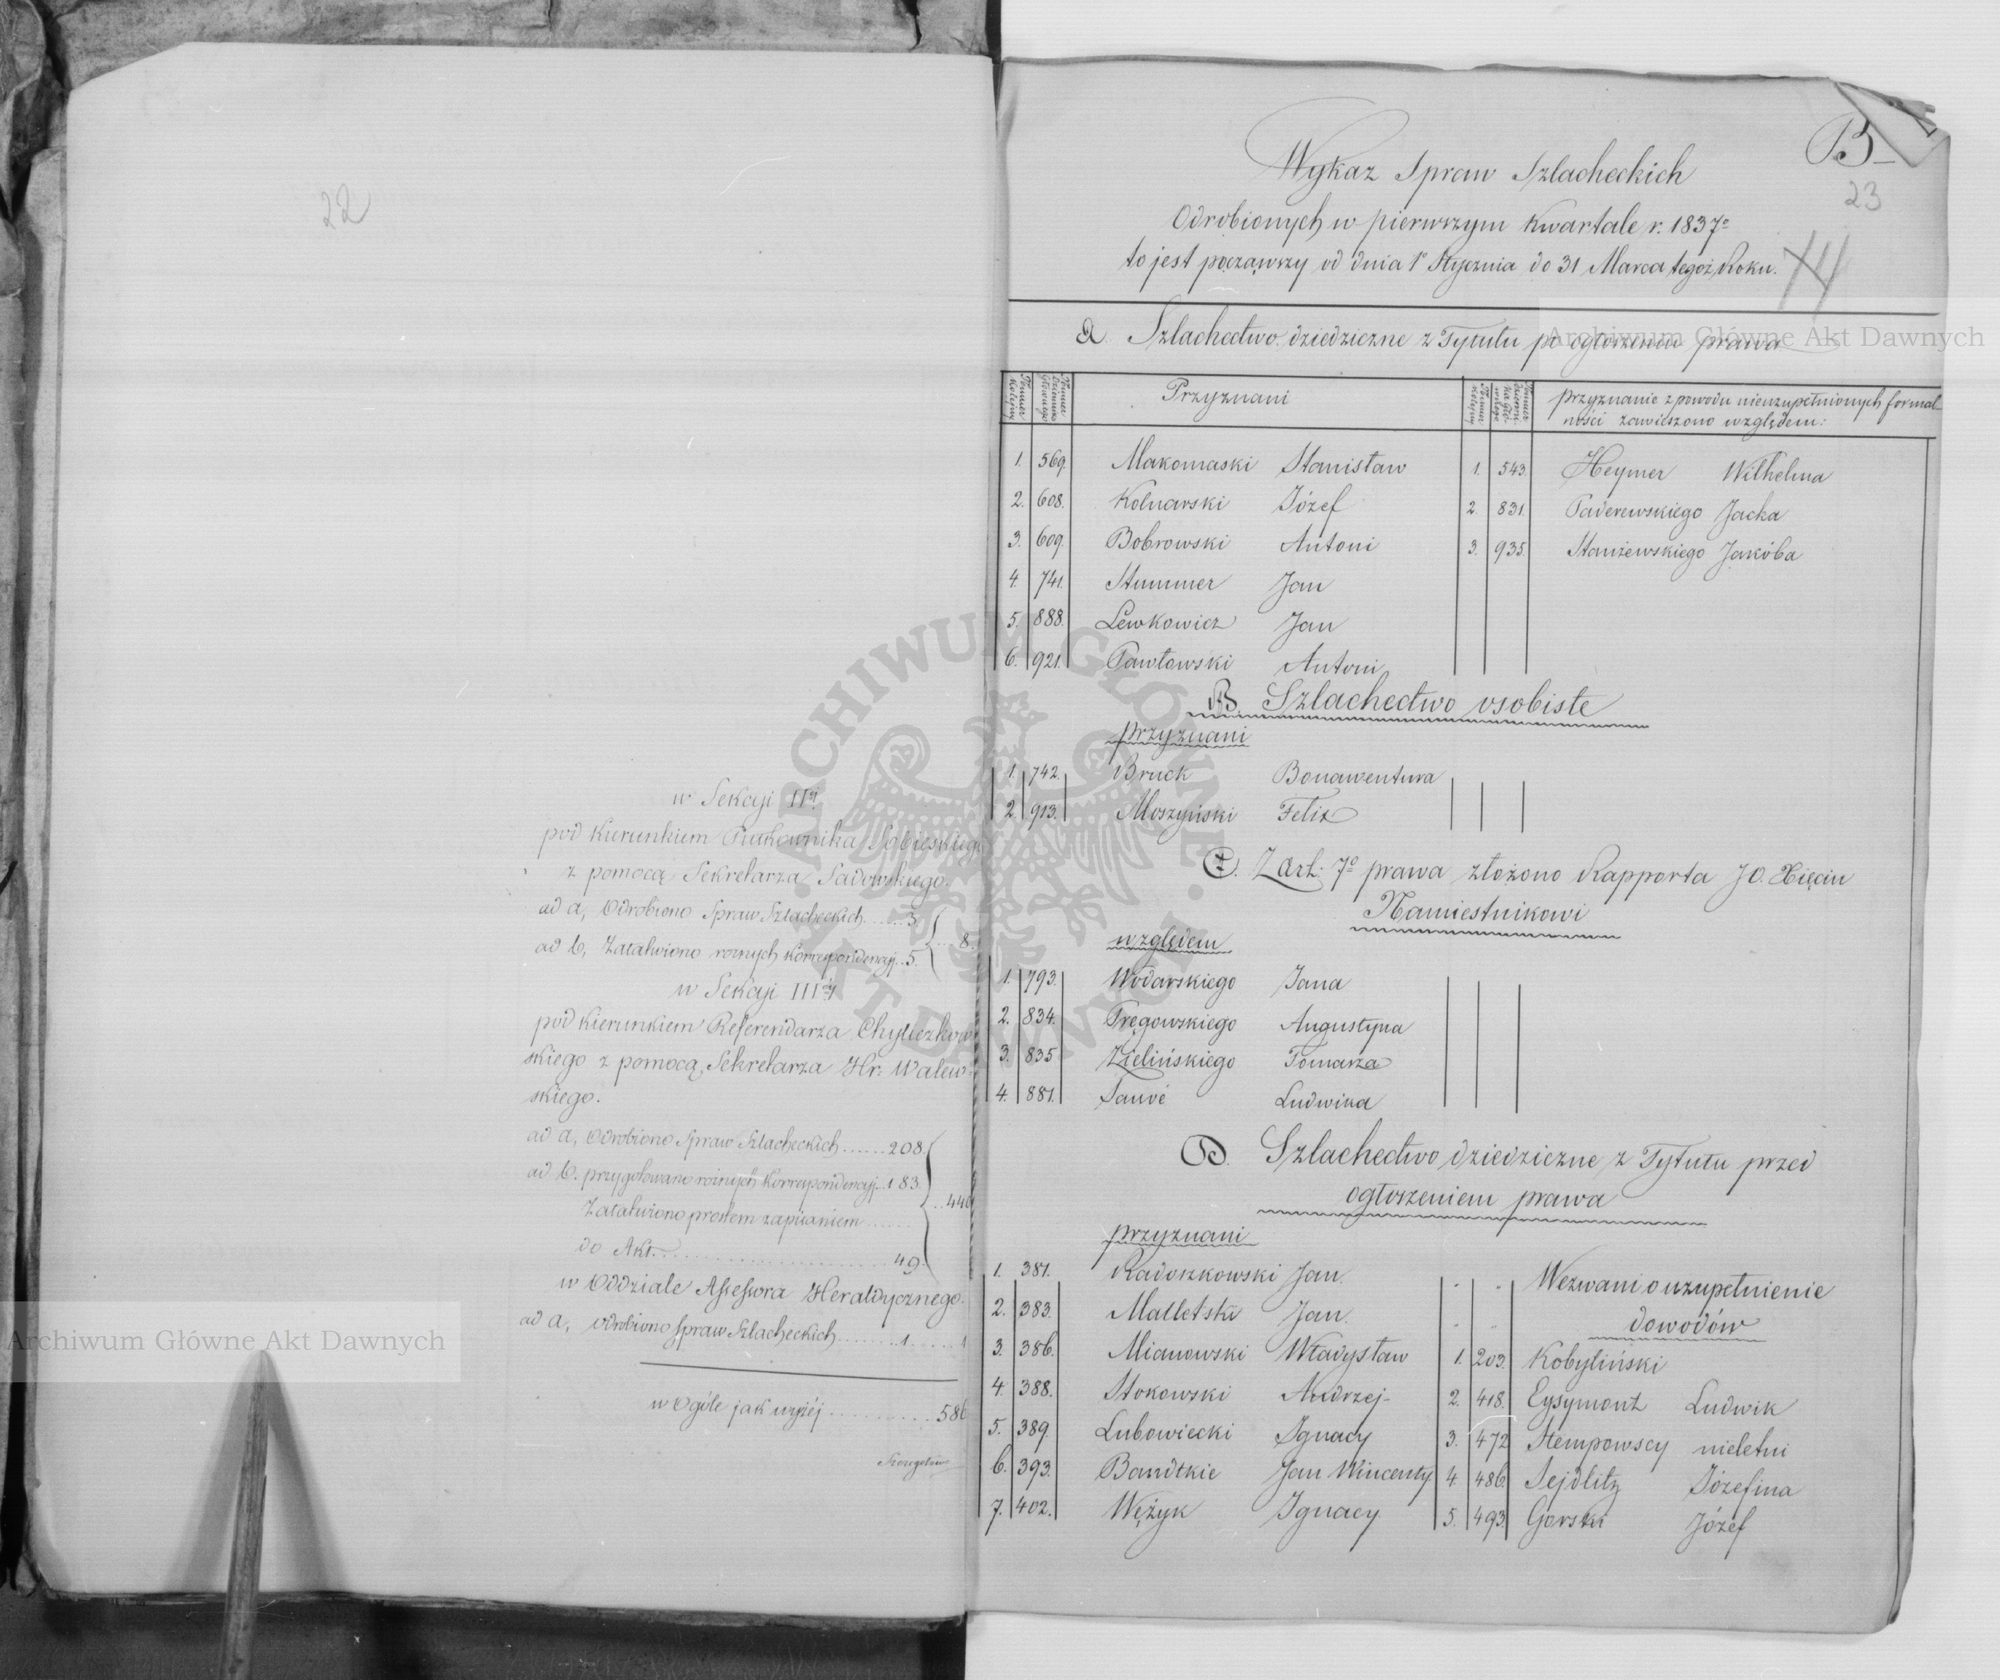 22
w Sekcji IIéj
pod Kierunkiem Pułkownika Sobieskiego
z pomocą Sekretarza Sadowskiego.
ad a, Odrobiono Spraw Szlacheckich ...... 3.
ad b, Załatwiono roznych korrespondencyj .. 5. .... 8.
w Sekcji IIIéj
pod kierunkiem Referendarza Chyliczkow
skiego z pomocą Sekretarza Hr: Walew-
skiego.
ad a, Odrobiono Spraw Szlacheckich ...... 208.
ad b. przygotowano roznych Korrespondencyj .. 183.
Załatwiono prostem zapisaniem ...... ..440
do Akt. .................. 49.
w Oddziale Assessora Heraldycznego.
ad a, odrobiono Spraw Szlacheckich ........ 1 ...... 1
w Ogóle jak wyżej ........... 586
B
23
Wykaz Spraw Szlacheckich
Odrobionych w pierwszym Kwartale r. 1837º
to jest począwszy od dnia 1º Stycznia do 31 Marca tegoż Roku.
a. Szlachectwo dziedziczne z Tytułu po ogłoszeniu prawa
Numer Kolejny
Numer Dziennika Głównego
Przyznani
Numer Kolejny
Numer Dziennika Głównego
przyznanie z powodu nieuzupełnionych formal-
ności zawieszono względem:
1. 569. Makomaski Stanisław 1. 543. Heymer Wilhelma
2. 608. Kolnarski Józef 2. 831. Paderewskiego Jacka
3. 609. Bobrowski Antoni 3. 935. Staniewskiego Jakóba
4. 741. Stummer Jan
5. 888. Lewkowicz Jan
6. 921. Pawłowski Antoni
B. Szlachectwo osobiste
przyznani
1. 742. Bruck Bonawentura
2. 913. Moszyński Felix
C. Z art: 7º prawa złożono Rapporta JO. Xięciu
Namiestnikowi
względem
1. 793. Wodarskiego Jana
2. 834. Pręgowskiego Augustyna
3. 835 Zielińskiego Tomasza
4. 881. Sauvé Ludwika
D. Szlachectwo dziedziczne z Tytułu przed
ogłoszeniem prawa
przyznani
1. 381. Radoszkowski Jan. Wezwani o uzupełnienie
2. 383. Malletski Jan. dowodów
3. 386. Mianowski Władysław 1. 203. Kobyliński
4. 388. Stokowski Andrzej 2. 418. Eysymont Ludwik
5. 389. Lubowiecki Ignacy 3. 472 Stempowscy nieletni
6. 393. Bandtkie Jan Wincenty 4. 486. Sejdlitz Józefina
7. 402. Wężyk Ignacy 5. 493. Gorski Józef
Archiwum Główne Akt Dawnych
Archiwum Główne Akt Dawnych
ARCHIWUM GŁÓWNE AKT DAWNYCH